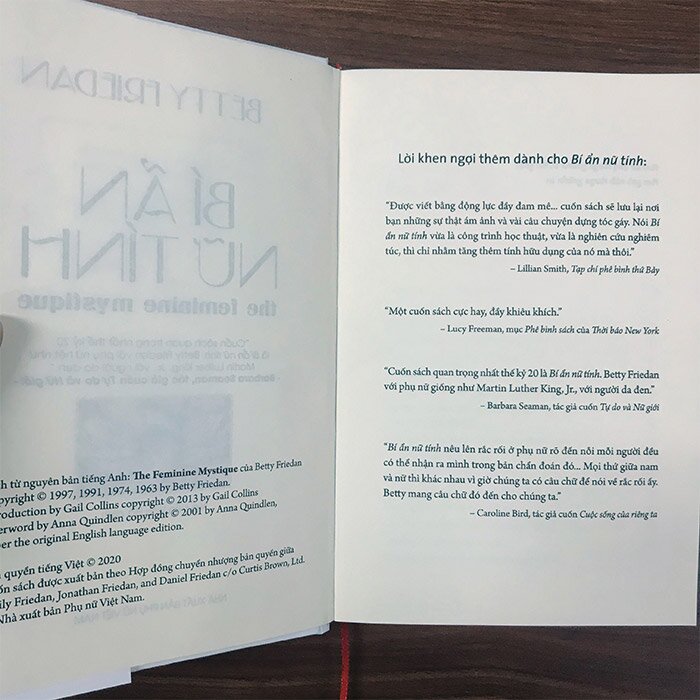 BETTY FRIEDAN
BÍ ẨN
NỮ TÍNH
the feminine mystique
"Cuốn sách quan trọng nhất thế kỷ 20
là Bí ẩn nữ tính. Betty Friedan với phụ nữ hệt như
Martin Luther King, Jr., với người da đen."
Barbara Seaman, tác giả cuốn Tự do và Nữ giới
từ nguyên bản tiếng Anh: The Feminine Mystique của Betty Friedan
opyright © 1997, 1991, 1974, 1963 by Betty Friedan.
roduction by Gail Collins copyright © 2013 by Gail Collins
erword by Anna Quindlen copyright © 2001 by Anna Quindlen,
er the original English language edition.
quyền tiếng Việt © 2020
ốn sách được xuất bản theo Hợp đồng chuyển nhượng bản quyền giữa
ily Friedan, Jonathan Friedan, and Daniel Friedan c/o Curtis Brown, Ltd.
Nhà xuất bản Phụ nữ Việt Nam.
NHÀ XUẤT BẢN PHỤ NỮ VIỆT NAM
Lời khen ngợi thêm dành cho Bí ẩn nữ tính:
"Được viết bằng động lực đầy đam mê... cuốn sách sẽ lưu lại nơi
bạn những sự thật ám ảnh và vài câu chuyện dựng tóc gáy. Nói Bí
ẩn nữ tính vừa là công trình học thuật, vừa là nghiên cứu nghiêm
túc, thì chỉ nhằm tăng thêm tính hữu dụng của nó mà thôi."
– Lillian Smith, Tạp chí phê bình thứ Bảy
"Một cuốn sách cực hay, đầy khiêu khích."
– Lucy Freeman, mục Phê bình sách của Thời báo New York
"Cuốn sách quan trọng nhất thế kỷ 20 là Bí ẩn nữ tính. Betty Friedan
với phụ nữ giống như Martin Luther King, Jr., với người da đen."
– Barbara Seaman, tác giả cuốn Tự do và Nữ giới
"Bí ẩn nữ tính nêu lên rắc rối ở phụ nữ rõ đến nỗi mỗi người đều
có thể nhận ra mình trong bản chẩn đoán đó... Mọi thứ giữa nam
và nữ thì khác nhau vì giờ chúng ta có câu chữ để nói về rắc rối ấy.
Betty mang câu chữ đó đến cho chúng ta."
– Caroline Bird, tác giả cuốn Cuộc sống của riêng ta